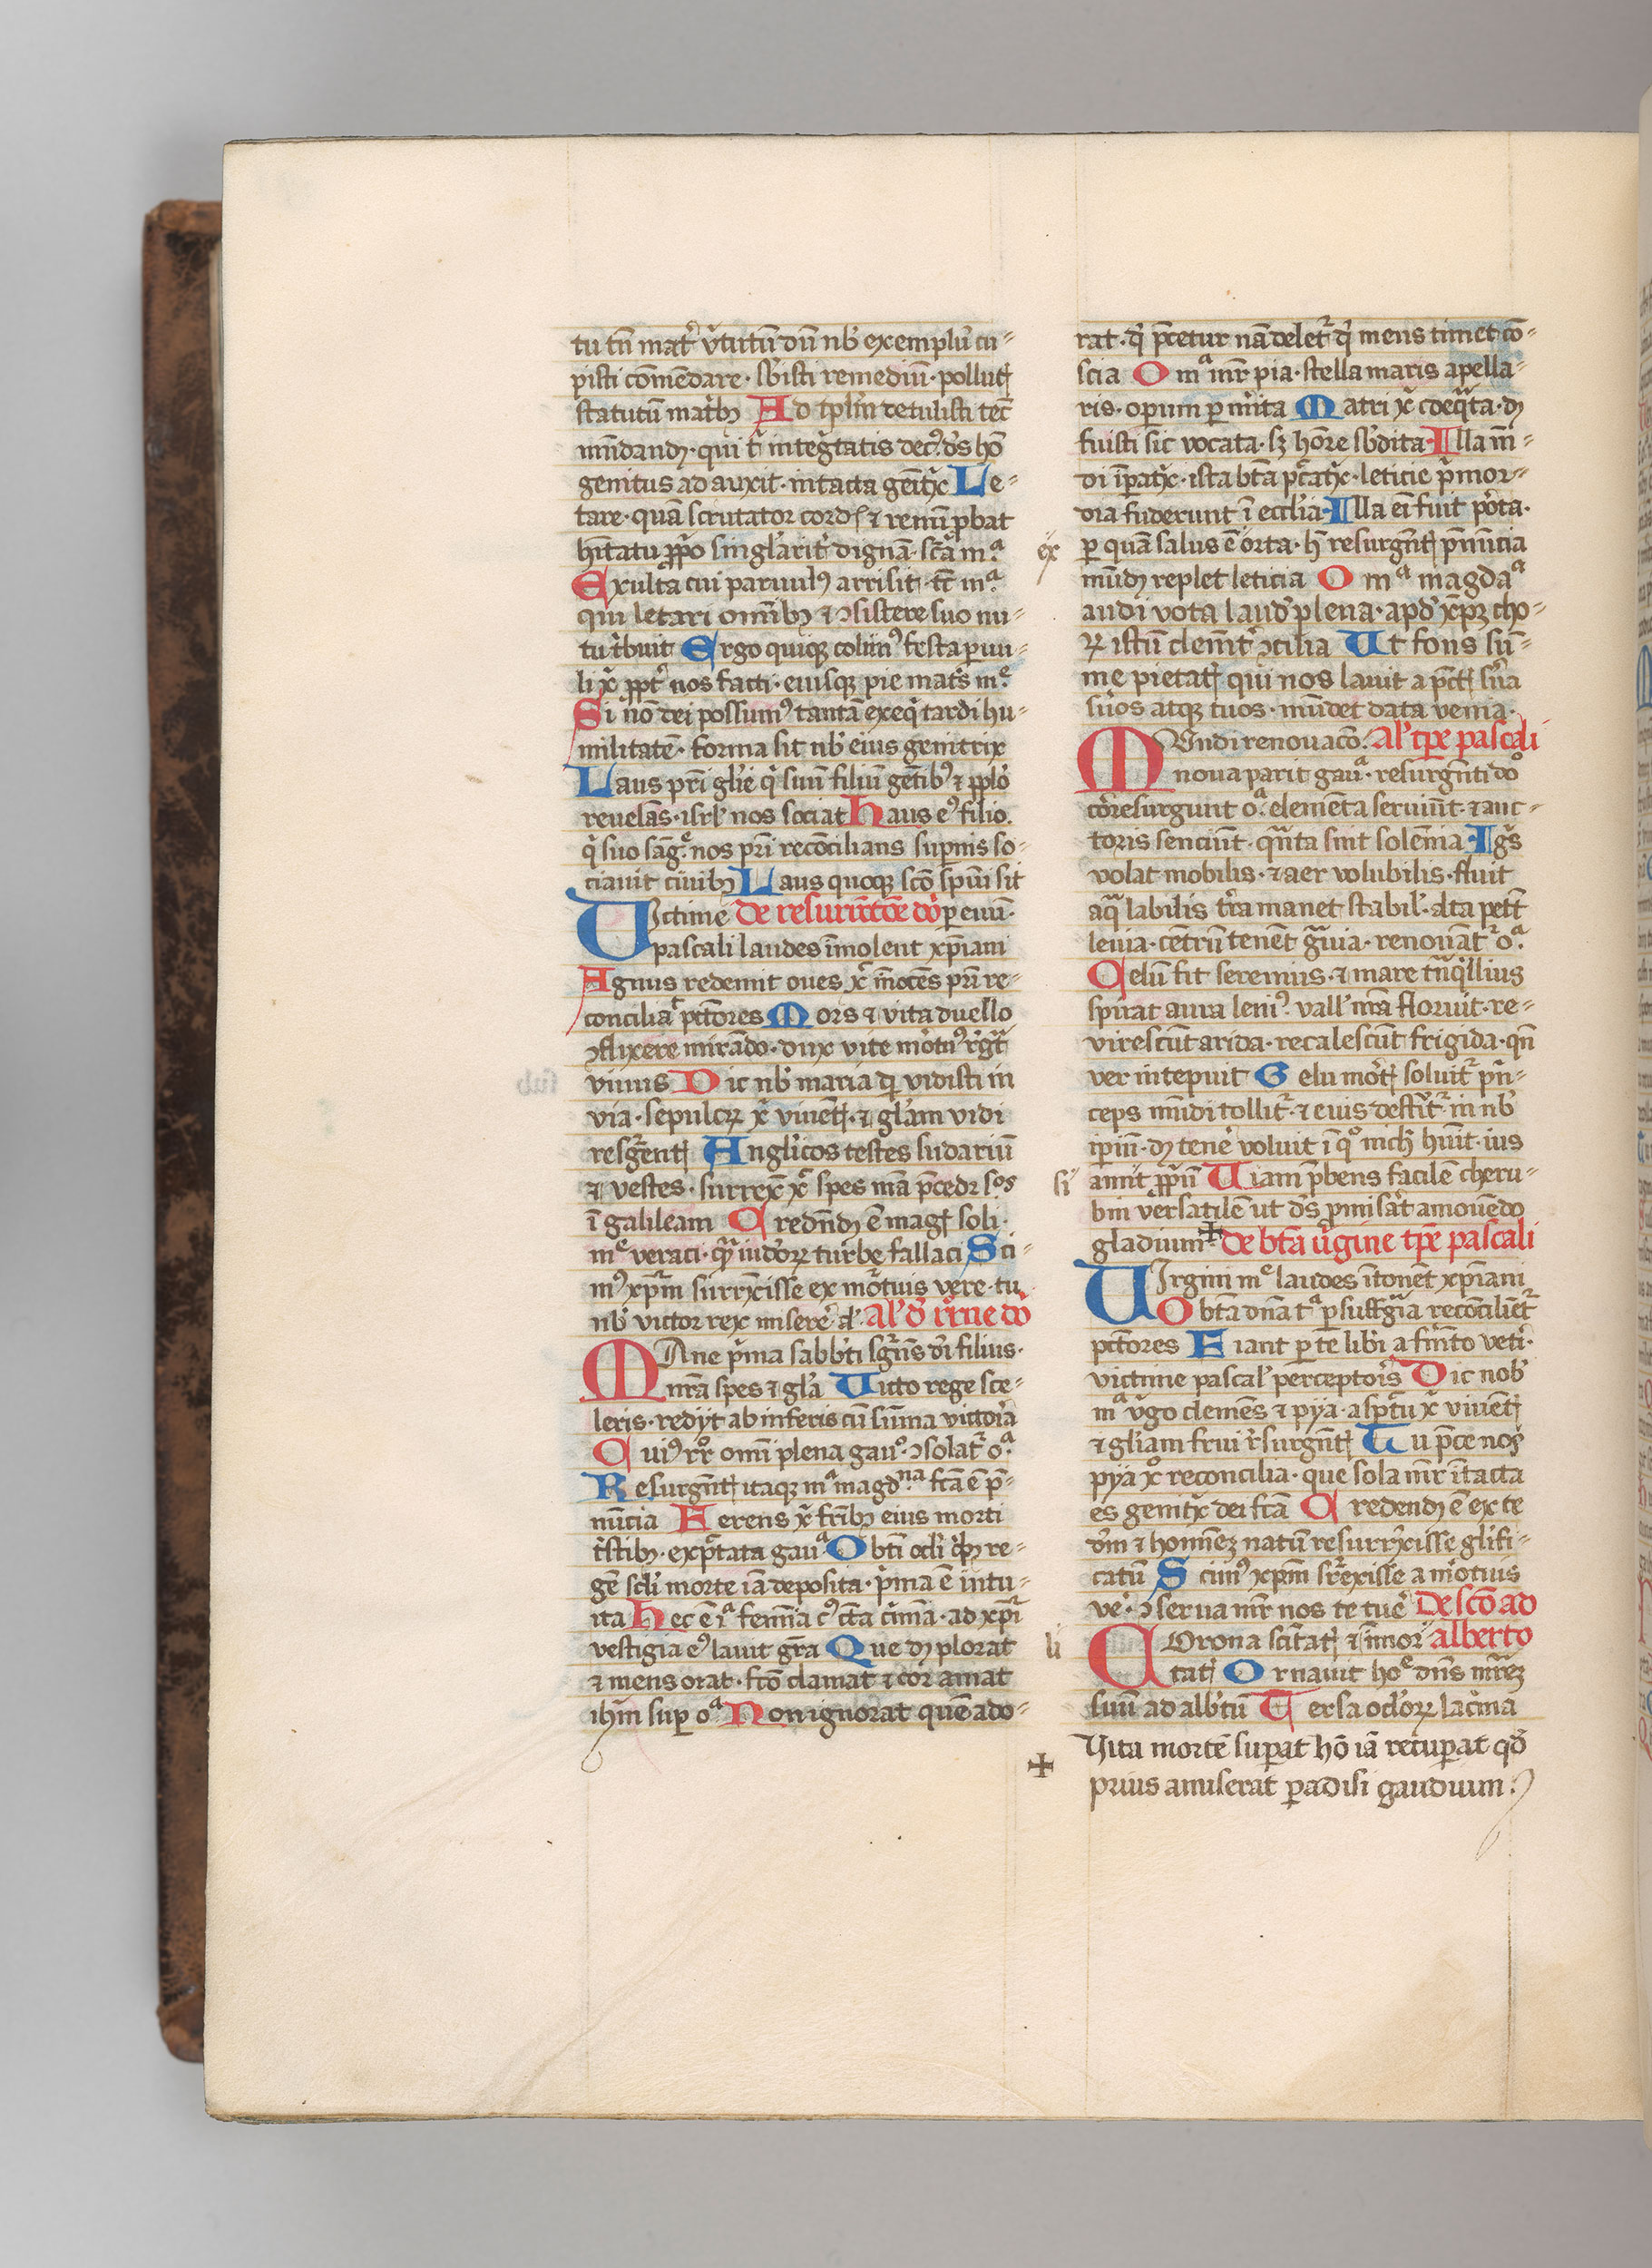 tu tn̄ mat᷑ v̓tutū dū nb̓ exemplū cu-
pisti cōmēdare · sb̓isti remediū · pollutꝭ
statutū matb̓ꝫ Ad tplm̄ detulisti tec̄
mūdandꝫ · qui t̓ integ̓tatis decꝰ · ds̄ hō
genitus ad auxit · intacta geit̓x Le-
tare · quā scrutator cordꝭ ⁊ renū ꝓbat
hītatu ꝓp̓o singlarit̓ dignā · scā mᵃ·
Exulta cui paruulꝰ arrisit · tc̄ mᵃ·
qui letari omībꝫ ⁊ ꝯsistere suo nu-
tu tb̓uit Ergo quiqꝫ colimꝰ festa paruu-
li x̄ ꝓpt̓ nos facti · eiusqꝫ pie mat̓s mᵉ·
Si nō dei possumꝰ tantā exeq̓ tardi hu-
militatē · forma sit nb̓ eius genitrix
Laus pr̄i gl̓ie q̓ suū filiū gētibꝰ ⁊ ppl̓o
reuelās · isrl̓ nos sociat Laus eꝰ filio·
q̓ suo sāg̓ᵉ nos pr̄i recōcilians supnis so-
ciauit ciuibꝫ Laus quoqꝫ scō spūi sit
Victime de resurirctōe dō̓ p euū·
pascali laudes īmolent xp̄iani
Agnus redemit oues x̄ īnocēs pr̄i re-
concilia᷑ pctōres Mors ⁊ vita duello
ꝯflixere mirādo · dux vite mo᷑tuꝰ r̓gt̄
viuus Dic nb̓ maria qͥ vidisti in
via · sepulcꝝ x̄ viuētꝭ · ⁊ gl̓am vidi
resg̓entꝭ Anglicos testes sudariū
⁊ vestes · surrex̄ x̄ spes mā p̄cedꝫ sᵒs
ī galileam Credn̄dꝫ ē magꝭ soli·
mᵉ veraci · qᷓ iudeo᷑ꝝ turbe fallaci Sci-
mꝰ xp̄m surrexisse ex mo᷑tuis vere · tu
nb̓ victor rex misere᷑ al̓ Al̓ d̓ r̓rne dō̓
Mane p̓ma sabb̓ti sg̓n̄s di filius·
nr̄a spes ⁊ gl̓a Victo rege sce-
leris · redijt ab inferis cū sūma victo᷑ia
Cuiꝰ rr̓o omī plena gauᵒ· ꝯsolat᷑ oᵃ·
Resurgn̄tꝭ itaqꝫ mᵃ magdⁿᵃ fcā ē p̄-
nūcia Ferens x̄ frībꝫ eius morti
t̓stibꝫ · exp̄tata gauᵃ Obtī ocl̓i qͥbꝫ re-
gē scl̓i morte iā deposita · p̓ma ē intu-
ita Hec ē iᵃ femīa cꝰ cta c̓mīa · ad xp̄i
vestigia eꝰ lauit gr̄a Que dꝫ plorat
⁊ mens orat · fcō clamat ⁊ cor amat
ihm̄ sup oᵃ Non ignorat quē ado-
rat · q̓ p̄cetur nā delet᷑ q̓ mens timet cō-
scia O mᵃ mr̄ pia · stella maris apella-
ris · oꝑum ꝑ mīta Matri x̄ coeq̓ta · dꝫ
fuisti sic vocata · sꝫ hōre sb̓dita Illa m̄-
di īꝑat̓x · ista btā pc̄at̓x · leticie p̓mor-
dia fuderunt ī ecclia Illa ei̅ fuit po᷑ta·
ex ꝑ quā salus ē orta · h̄ resurgn̄tꝭ pn̄ūcia
mūdꝫ replet leticia O mᵃ magdaᵃ
audi vota laud̓ plena · apd̓ xp̄ꝫ cho-
ꝝ istū clemēt̓ ꝯcilia Ut fons sū-
me pietatꝭ qui nos lauit a pctꝭ su᷑a
suos atqꝫ tuos · mūdet data venia·
MUndi renouacō· Al̓ tꝑe pascali
noua parit gauᵃ· resurgn̄ti dōᵒ
cōresurgunt oᵃ· elemēta seruiūt · ⁊ auc-
toris senciūt · qn̄ta sint solēnia Igs̄
volat mobilis · ⁊ aer volubilis · fluit
aqᷓ labilis t̓ra manet stabil̓ · alta petūt
leuia · cētrū tenēt gᷓuia · renouāt᷑ oᵃ·
Celū fit serenius · ⁊ mare tn̄q̓llius
spirat aura leniꝰ· vall̓ nr̄a floruit · re-
virescūt arida · recalescūt frigida · qn̄
ver intepuit Gelu mo᷑tꝭ soluit᷑ p̓n-
ceps mūdi tollit᷑ · ⁊ eius destīt᷑ in nb̓
iꝑiū · dꝫ tene᷑ voluit ī qᵒ nich̓ hūit · ius
si amīt ꝓp̓ū Uiam p̄bens facilē cheru-
bin versatilē ut ds̄ ꝓmisāt amouēdo
gladium ✠ de btā v̓gine tꝑe pascali
Uirgini mᵉ laudes ītonēt xp̄iani
O btā dn̄a tᵃ ꝑ suffg̓ia recōciliēt᷑
pctōres Fiant ꝑ te lib̓i a frn̄to veti̓·
victime pascal̓ perceptoris Dic nob̓
mᵃ v̓go clemēs ⁊ pya · aspc̄tu x̄ viuētꝭ
⁊ gl̓iam frui r̓surgn̄tꝭ Tu p̄ce nos
pya xᵒ reconcilia · que sola mr̄ ītacta
es genit̓x dei fcā Credendꝫ ē ex te
dm̄ ⁊ hominez natū resurrexisse gl̓ifi-
catū Scimꝰ xp̄m sr̄exisse a mo᷑tuis
ve᷑· ꝯserua mr̄ nos te tue᷑ De scō ad
li COrona sc̄itatꝭ ⁊ īmor- alberto
tatꝭ Ornauit hoᵉ dn̄s mr̄ez
suū ad alb̓tū Tersa oclo᷑ꝝ lac̓ma
✠ Vita mortē suꝑat hō iā recuꝑat qd̓
prius amiserat ꝑadisi gaudium·